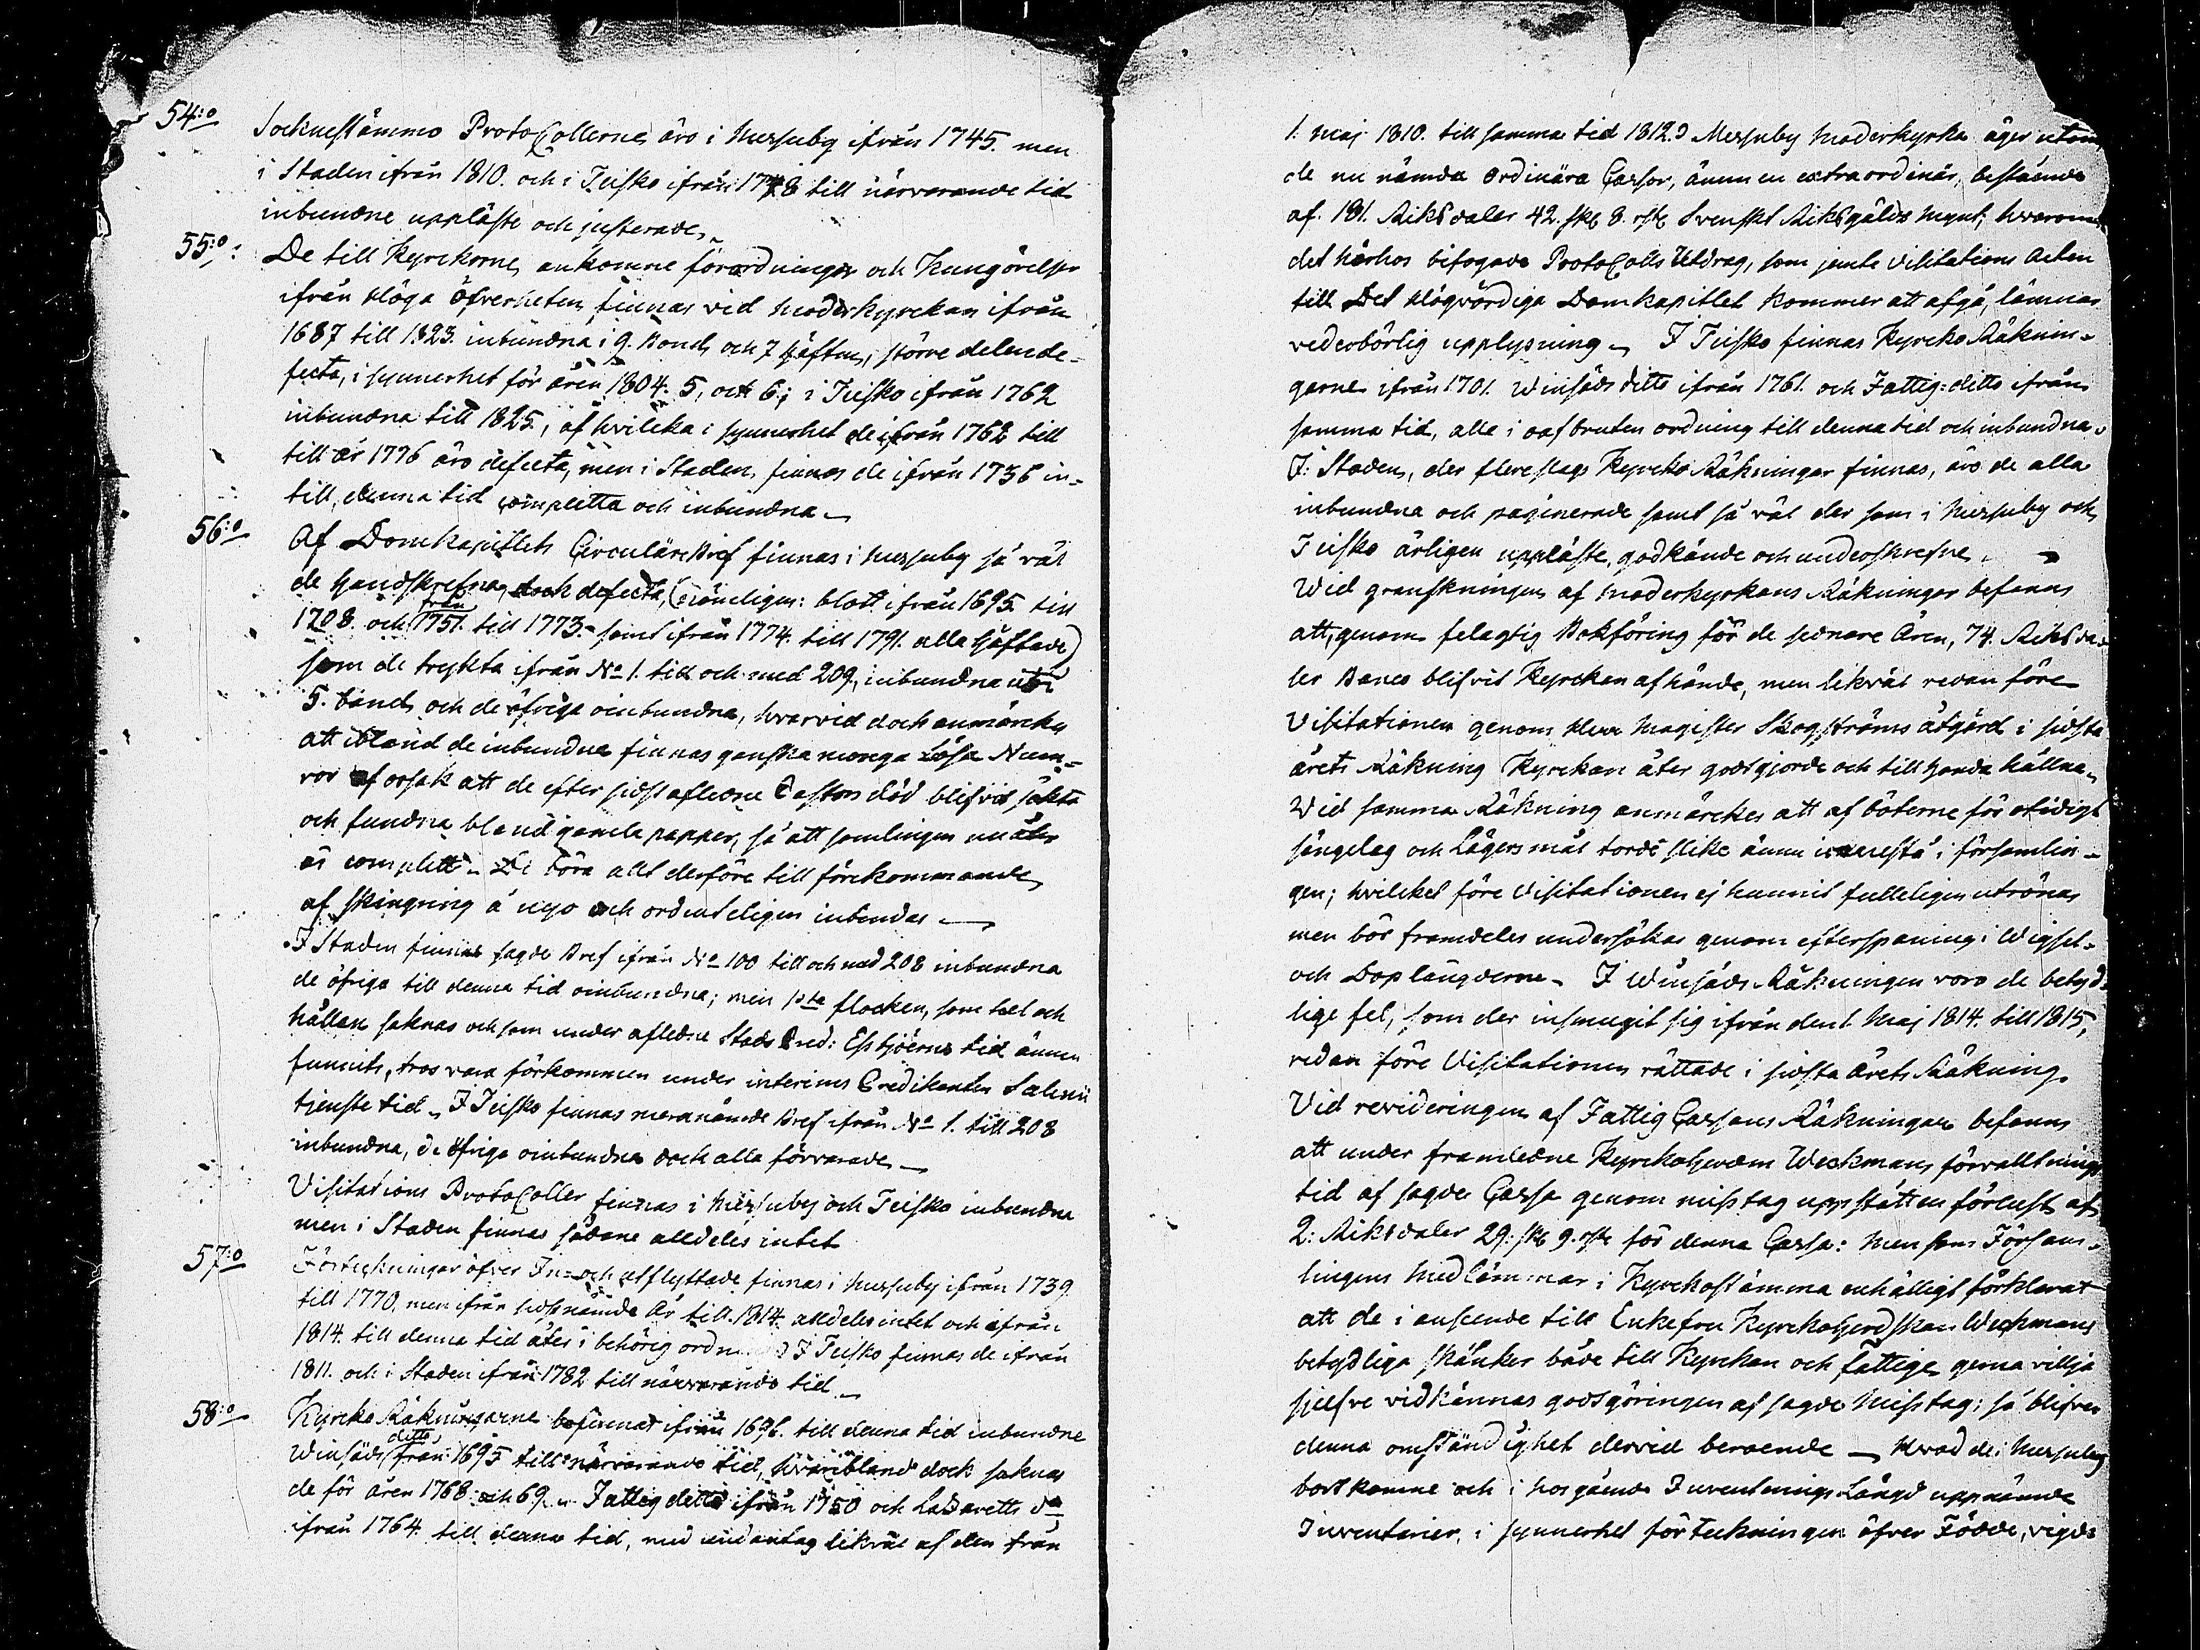 54:o Sockneståmmo ProtoCollerne äro i Messuby ifrån 1745. men
i Staden ifrån 1810. och i Teisko ifrån 1778 till närvarande tid
inbundne uppläste och justerade.
55:o: De till Kyrckorne ankomne förordningar och Kungörelser
ifrån Höga Öfverheten finnas vid moderkyrckan ifrån
1687 till 1823. inbundna i 9. Band, och 7 häften, större delen de-
fecta, i synnerhet för åren 1804. 5, och 6; i Teisko ifrån 1762
inbundna till 1825, af hvilcka i synnerhet de ifrån 1762 till
till år 1776 äro defecta, men i Staden finnas de ifrån 1736 in-
till denna tid completta och inbundna
56:o Af Domkapitlets Circulära Bref finnas i Messuby så väl
de handskrefna, dock defecta, (nämligen: blott ifrån 1695 till
1708. och från 1751. till 1773. samt ifrån 1774. till 1791. alla häftade)
som de tryckta ifrån No 1. till och med 209, inbundna uti
5. band, och de öfriga oinbundna, hvarvid dock anmärckes
att ibland de inbundna finnas ganska monga Lösa Num-
ror af orsak att de efter sidst afledne Pastors död blifvit sökta
och fundna bland gamla papper, så att samlingen nu åter
är complett. De böra allt derföre till förekommande
af skingring å nyo och ordenteligen inbindas
I Staden finnas sagde Bref ifrån No 100 till och med 208 inbundna
de öfriga till denna tid oinbundna; men 1sta flocken, som hel och
hållen saknas och som under afledne Stads Pred: Essbjörns tid ännu
funnits, tros vara förkommen under interims Predikanten Salenii
tjenste tid. I Teisko finnas meranämde Bref ifrån No 1. till 208
inbundna, de öfriga oinbundna dock alla förvarade
Visitations ProtoColler finnas i Messuby och Teisko inbundna
men i Staden finnas sådane alldeles intet
57:o Förteckningar öfver In- och utflyttade finnas i Messuby ifrån 1739
till 1770, men ifrån sidstnämde år till 1814. alldeles intet och ifrån
1814. till denna tid åter i behörig ordn I Teisko finnas de ifrån
1811. och i Staden ifrån 1782 till närvarande tid
58:o Kyrcko Räkningarne befinnas ifrån 1696. till denna tid inbundne
Winsäds ditto från 1695 till närvarande tid, hvaribland dock saknas
de för åren 1768 och 69. Fattig ditto ifrån 1750 och Lazaretts do
ifrån 1764. till denna tid, med undantag likväl af den från
1. maj 1810. till samma tid 1812. Messuby Moderkyrka äger utom
de nu nämda ordinära Cassor, ännu en extraordinär, bestående
af. 181. Riksdaler 42. sk 8. rst Svenskt Riksgälds Mynt; hvarom
det härhos bifogade ProtoColls Utdrag, som jemte Visitations Acten
till Det Högvördiga Domkapitlet kommer att afgå, lämnar
vederbörlig upplysning. I Teisko finnas Kyrcko Räknin-
garne ifrån 1701. Winsäds ditto ifrån 1761. och Fattig: ditto ifrån
samma tid, alla i oafbruten ordning till denna tid och inbundna.
I: Staden, der flere slags Kyrcko Räkningar finnas, äro de alla
inbundna och paginerade samt så väl der som i Messuby och
Teisko årligen uppläste, godkände och underskrefne.
Wid granskningen af Moderkyrkans Räkningar befanns
att, genom felagtig Bokföring för de sednare Åren, 74. Riksda-
ler Banco blifvit Kyrckan afhände, men likväl redan före
Visitationen genom Herr Magister Skogströms åtgärd i sidsta
årets Räkning Kyrckan åter godtgjorde och till handa hållna.
Wid samma Räkning anmärckes att af böterne för otidigt
sängelag och Lägersmål torde slike ännu innestå i församlin-
gen; hvilcket före Visitationen ej hunnit fulleligen utrönas
men bör framdeles undersökas genom efterspaning i Wigsel-
och Doplängderne. I Winsäds Räkningen voro de betyd-
lige fel, som der insmugit sig ifrån den 1. Maj 1814. till 1815,
redan före Visitationen rättade i sidsta årets Räkning.
Vid revideringen af Fattig Cassans Räkningar befanns
att under framledne Kyrkoherden Weckmans förvalltnings
tid af sagde Cassa genom misstag uppstått en förlust af
2: Riksdaler 29. sk 9. rst för denna Cassa: Men som Försam-
lingens Medlämmar i Kyrckoståmma enhälligt förklarat
att de i anseende till Enkefru Kyrckoherdskan Weckmans
betydliga skänker både till Kyrckan och fattige gerna villja
sjelfve vidkännas godtgöringen af sagde Misstag; så blifver
denna omständighet dervid beroende. Hvad de i Messuby
bortkomne och i hosgående Inventerings Längd uppnämde
Inventarier, i synnerhet förteckningen öfver Födde, vigde